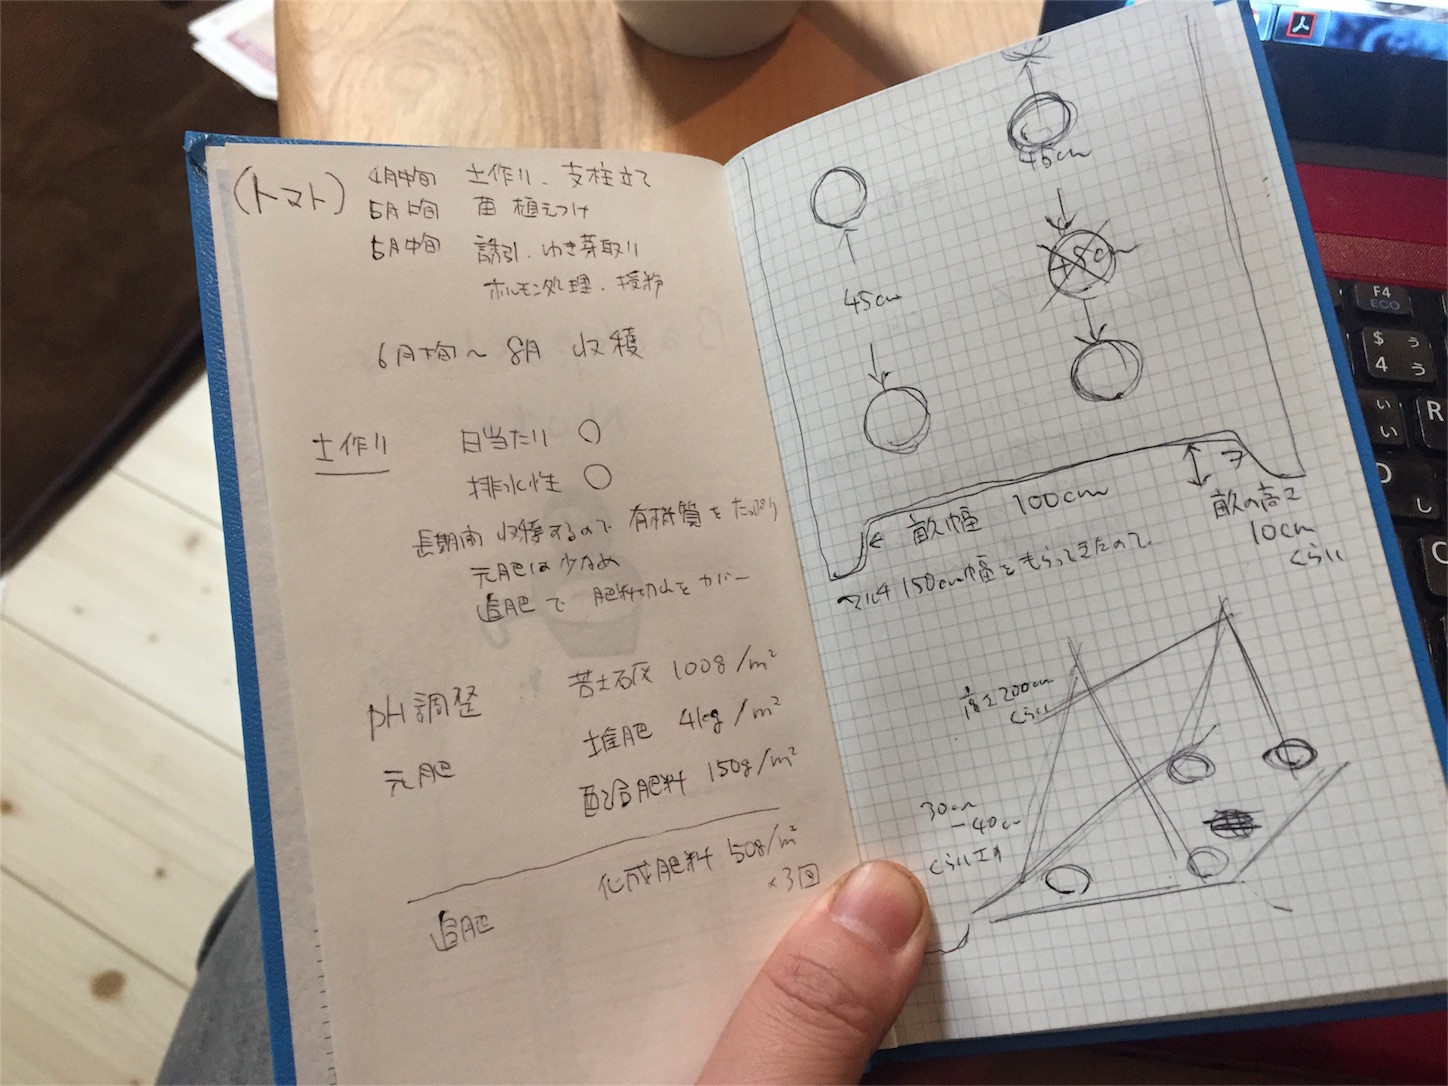 (トマト) 4月中旬 土作り、支柱立て
5月上旬 苗 植えつけ
5月中旬 誘引、わき芽取り
ホルモン処理、授粉
6月下旬〜8月 収穫
土作り 日当たり ○
排水性 ○
長期間 収穫するので 有機質を たっぷり
元肥は 少なめ
追肥で 肥料切れを カバー
pH調整 苦土石灰 100g/m²
元肥 堆肥 4kg/m²
配合肥料 150g/m²
追肥 化成肥料 50g/m²
×3回
45cm
45cm
畝幅 100cm
畝の高さ
10cm
くらい
マルチ 150cm幅をもらってきたので
高さ200cm
くらい
30cm
ー40cm
F4
ECO
$ ぅ
4 う
ぃ
い
R
し